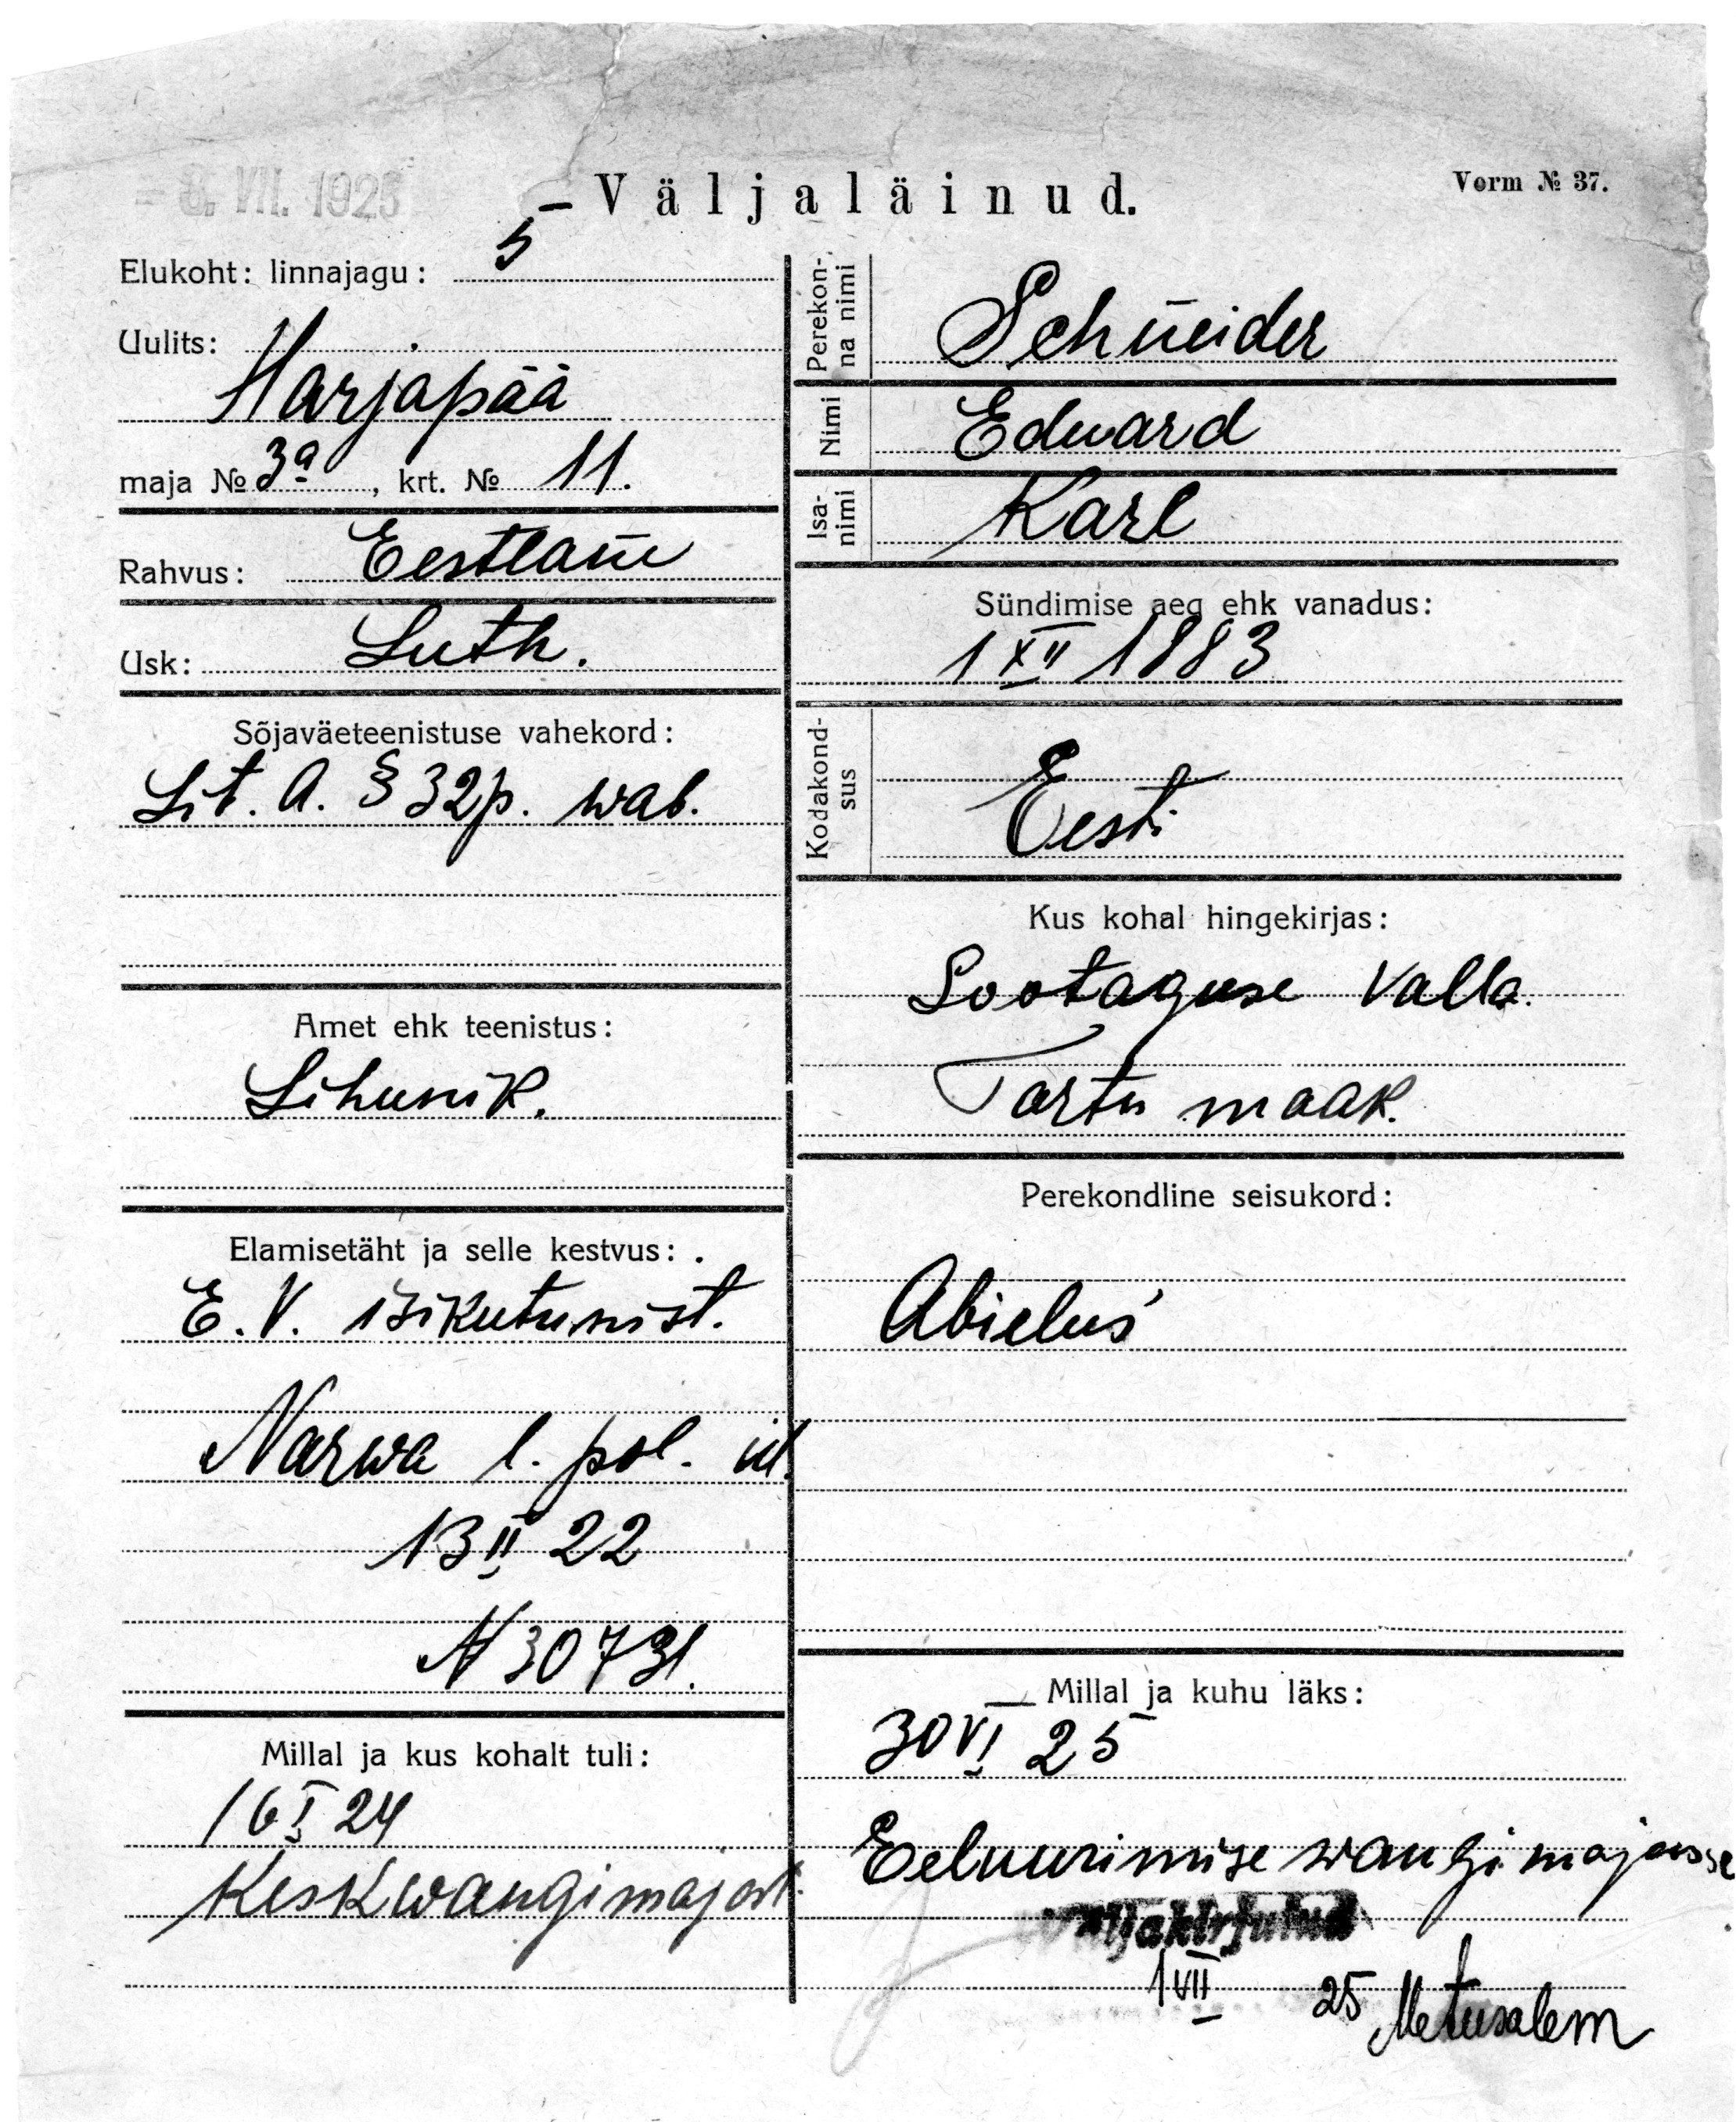 = 6. VII. 1925
Väljaläinud.
Vorm № 37.
Elukoht: linnajagu: 5
Uulits:
Harjapää
maja № 3a, krt. № 11.
Rahvus: Eestlane
Usk: Luth.
Sõjaväeteenistuse vahekord:
Lit. A. § 32 p. wab.
Amet ehk teenistus:
Lihunik.
Elamisetäht ja selle kestvus:
E.V. isikutunist.
Narwa l. pol. ül.
13 II 22
N 30731.
Millal ja kus kohalt tuli:
16 I 24
Keskwangimajast.
Perekonna nimi
Schneider
Nimi
Eduard
Isanimi
Karl
Sündimise aeg ehk vanadus:
1 XII 1883
Kodakondsus
Eesti
Kus kohal hingekirjas:
Sootaguse valla.
Tartu maak.
Perekondline seisukord:
Abielus
Millal ja kuhu läks:
30 VI 25
Eeluurimise wangimajasse
Wäljakirjutud
1 VII 25 Metusalem